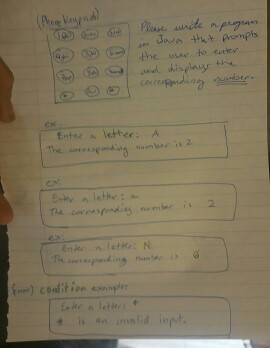 (Phone keypads)
Please write a program
in Java that prompts
the user to enter
and displays the
corresponding number.
ex:
Enter a letter: A
The corresponding number is 2
ex:
Enter a letter: a
The corresponding number is 2
ex:
Enter a letter: N
The corresponding number is 6
condition example:
Enter a letter: +
+ is an invalid input.